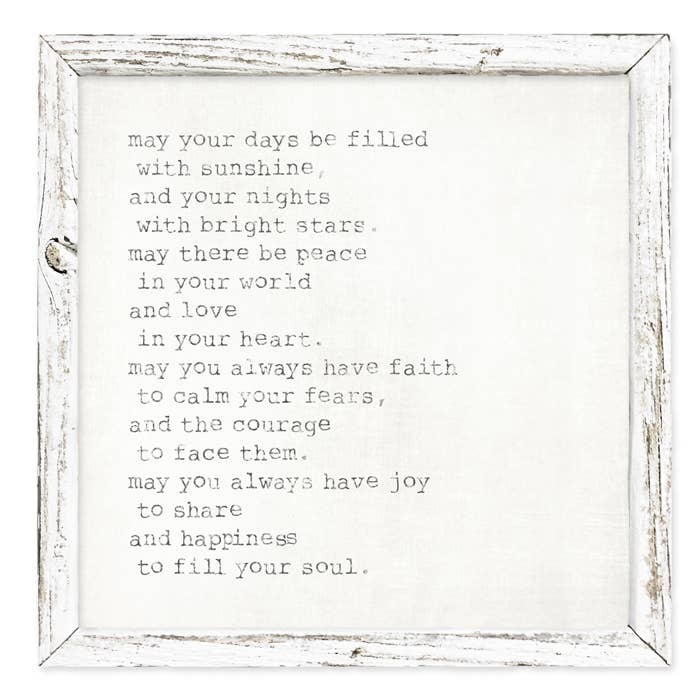 may your days be filled
with sunshine,
and your nights
with bright stars.
may there be peace
in your world
and love
in your heart.
may you always have faith
to calm your fears,
and the courage
to face them.
may you always have joy
to share
and happiness
to fill your soul.